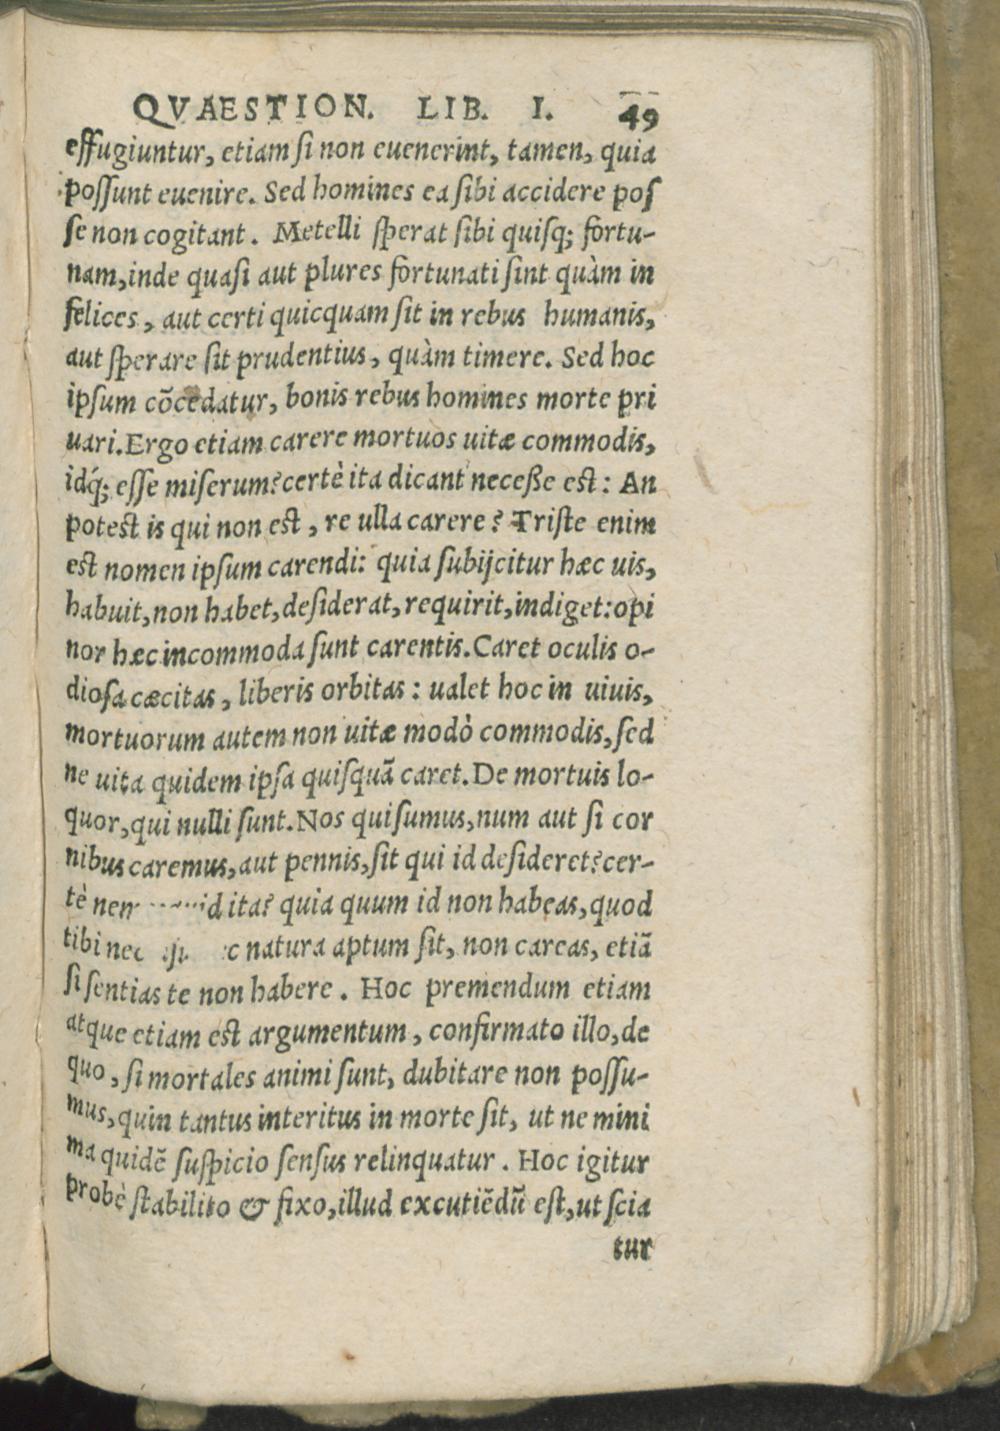 QVAESTION. LIB. I. 49
effugiuntur, etiam si non euenerint, tamen, quia
possunt euenire. Sed homines ea sibi accidere pos
se non cogitant. Metelli sperat sibi quisq; fortu-
nam, inde quasi aut plures fortunati sint quàm in
felices, aut certi quicquam sit in rebus humanis,
aut sperare sit prudentius, quàm timere. Sed hoc
ipsum cõcedatur, bonis rebus homines morte pri
uari. Ergo etiam carere mortuos uitæ commodis,
idq́; esse miserum? certè ita dicant neceße est: An
potest is qui non est, re ulla carere? Triste enim
est nomen ipsum carendi: quia subijcitur hæc uis,
habuit, non habet, desiderat, requirit, indiget: opi
nor hæc incommoda sunt carentis. Caret oculis o-
diosa cæcitas, liberis orbitas: ualet hoc in uiuis,
mortuorum autem non uitæ modò commodis, sed
ne uita quidem ipsa quisquã caret. De mortuis lo-
quor, qui nulli sunt. Nos qui sumus, num aut si cor
nibus caremus, aut pennis, sit qui id desideret? cer-
tè ita? quia quum id non habeas, quod
tibi natura aptum sit, non careas, etiã
si sentias te non habere. Hoc premendum etiam
atque etiam est argumentum, confirmato illo, de
quo, si mortales animi sunt, dubitare non possu-
mus, quin tantus interitus in morte sit, ut ne mini
ma quidẽ suspicio sensus relinquatur. Hoc igitur
probè stabilito & fixo, illud excutiẽdũ est, ut scia
tur